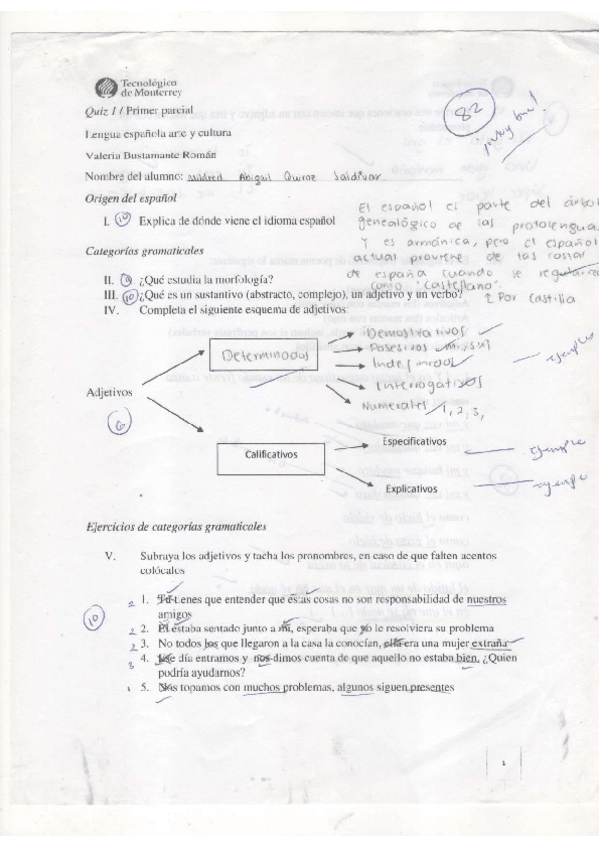 Tecnológico
de Monterrey
82
muy bien!
Quiz 1 / Primer parcial
Lengua española arte y cultura
Valeria Bustamante Román
Nombre del alumno: Mildred Abigail Quiroz Saldívar
Origen del español
I. 10 Explica de dónde viene el idioma español
El español es parte del árbol
genealógico de las protolenguas
Y es armónica, pero el español
actual proviene de las
de españa cuando se
como "castellano".
Por Castilla
Categorías gramaticales
II. ¿Qué estudia la morfología?
III. 10 ¿Qué es un sustantivo (abstracto, complejo), un adjetivo y un verbo?
IV. Completa el siguiente esquema de adjetivos:
Adjetivos
6
Determinados
Demostrativos
Posesivos mi, su
Indefinidos
ejemplo
Interrogativos
Numerales 1, 2, 3,
Calificativos
Especificativos
ejemplo
Explicativos
ejemplo
Ejercicios de categorías gramaticales
V. Subraya los adjetivos y tacha los pronombres, en caso de que falten acentos
colócalos
10
2 1. Tú tienes que entender que éstas cosas no son responsabilidad de nuestros
amigos
2 2. El estaba sentado junto a mí, esperaba que yo le resolviera su problema
2 3. No todos los que llegaron a la casa la conocían, ella era una mujer extraña
3 4. Ese día entramos y nos dimos cuenta de que aquello no estaba bien. ¿Quien
podría ayudarnos?
1 5. Nos topamos con muchos problemas, algunos siguen presentes
1